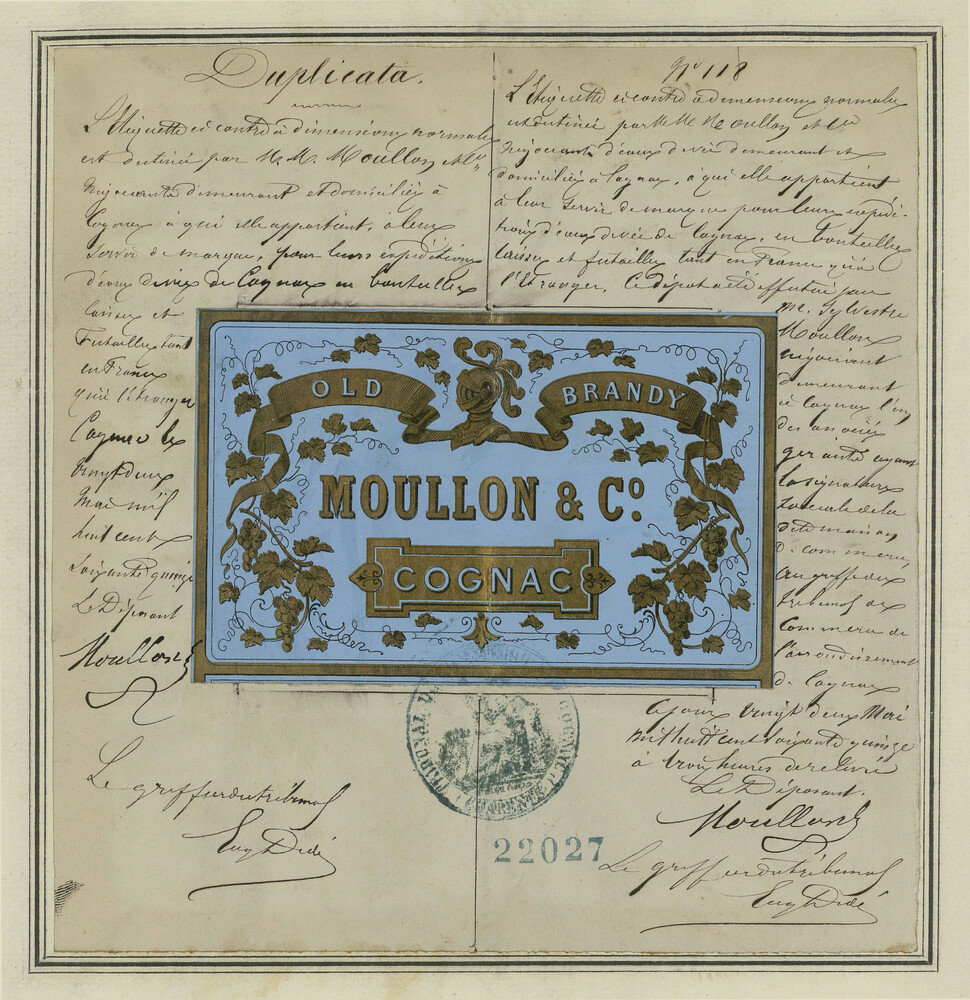 Duplicata.
L'Etiquette ci contre à dimensions normales
est destinée par M.M. Moullon et Cie
négociants demeurant et domiciliés à
Cognac à qui elle appartient, à leur
servir de marque, pour leurs expéditions
d'eaux de vie de Cognac en bouteilles
caisses et
futailles tant
en France
qu'à l'étranger
Cognac le
vingt deux
Mai mil
huit cent
soixante quinze
Le Déposant
Moullon
Le greffier du tribunal
Eug Didé
No 118
L'Etiquette ci contre à dimensions normales
est destinée par M.M. Moullon et Cie
négociants d'eaux de vie demeurant et
domiciliés à Cognac, à qui elle appartient
à leur servir de marque pour leurs expédi-
tions d'eaux de vie de Cognac, en bouteilles
caisses et futailles tant en France qu'à
l'étranger, Ce dépôt a été effectué par
Mr. Sylvestre
Moullon
négociant
demeurant
à Cognac l'un
des associés
gérants ayant
la signature
sociale de la
dite maison
de commerce,
au greffe du
tribunal de
Commerce de
l'arrondissement
de Cognac
ce jour vingt deux Mai
mil huit cent soixante quinze
à trois heures de relevée
Le Déposant.
Moullon
Le greffier du tribunal
Eug Didé
OLD BRANDY
MOULLON & Co.
COGNAC
22027